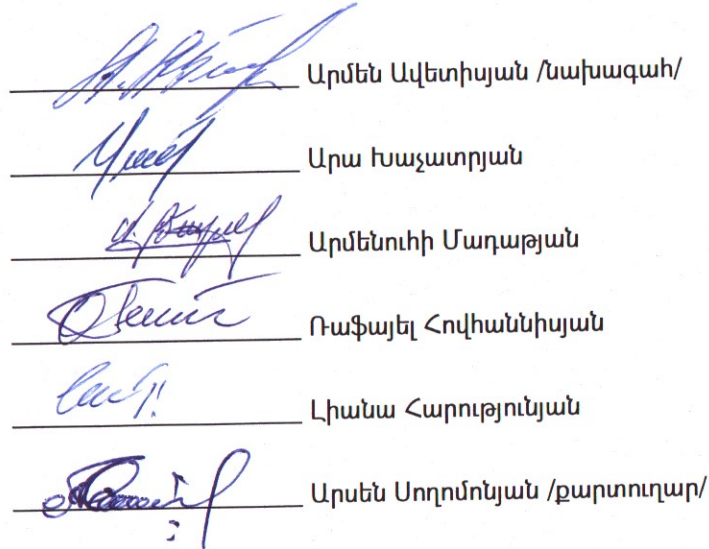 Արմեն Ավետիսյան /նախագահ/
Արա Խաչատրյան
Արմենուհի Մադաթյան
Ռաֆայել Հովհաննիսյան
Լիանա Հարությունյան
Արսեն Սողոմոնյան /քարտուղար/